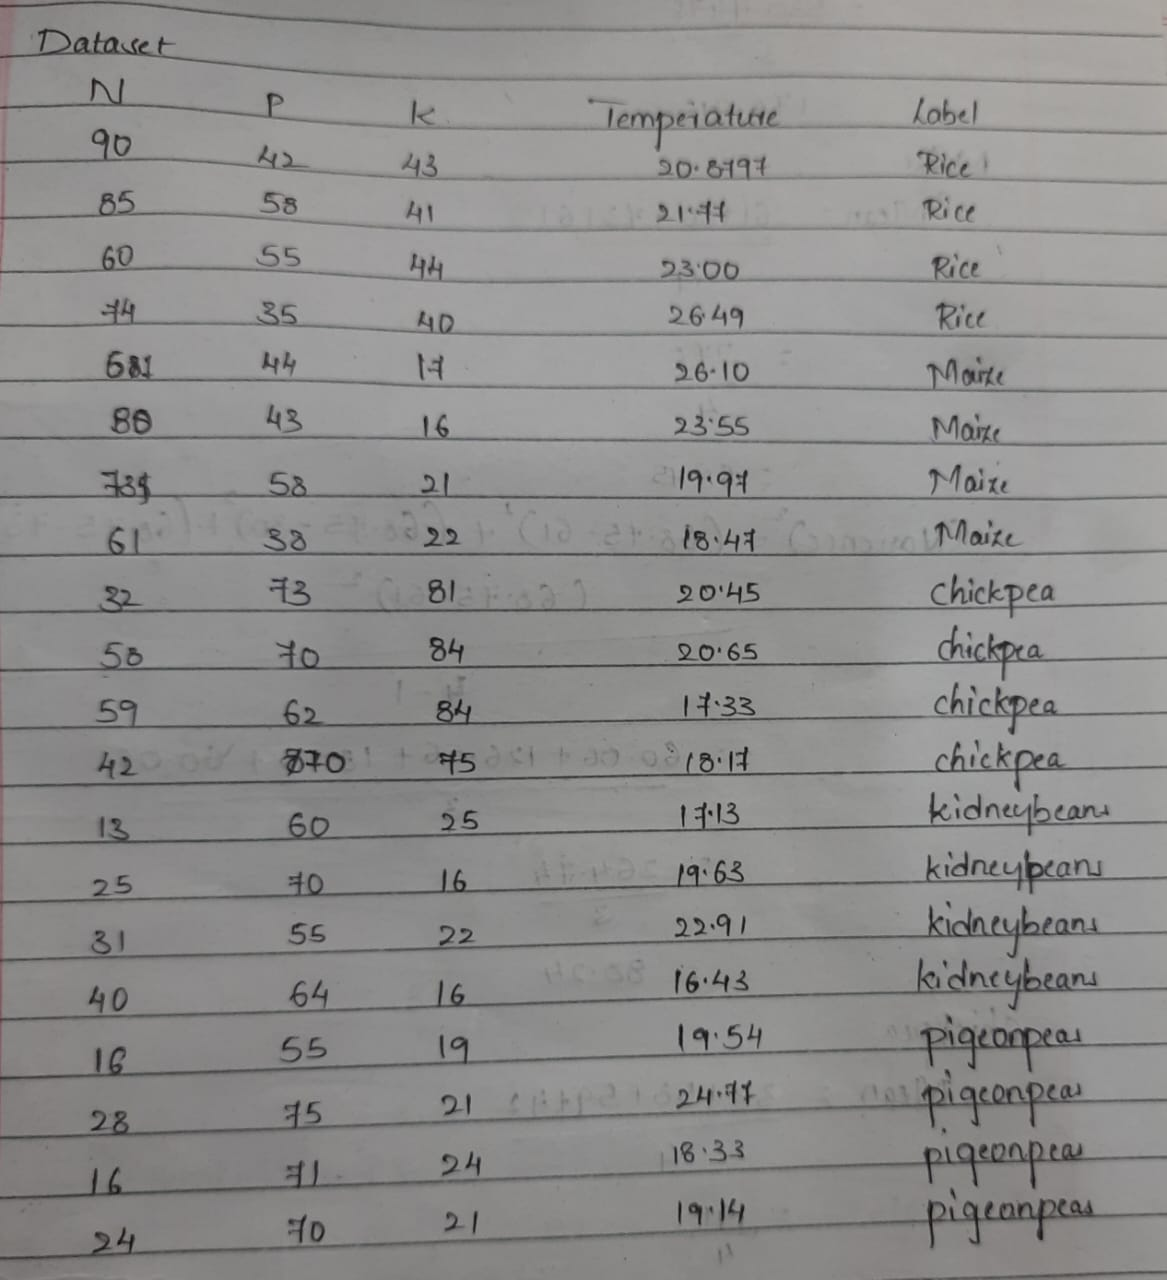 Dataset
N P K Temperature Label
90 42 43 20.8797 Rice
85 58 41 21.77 Rice
60 55 44 23.00 Rice
74 35 40 26.49 Rice
44 17 26.10 Maize
80 43 16 23.55 Maize
58 21 19.97 Maize
61 38 22 18.47 Maize
32 73 81 20.45 chickpea
58 70 84 20.65 chickpea
59 62 84 17.33 chickpea
42 70 75 18.17 chickpea
13 60 25 17.13 kidneybeans
25 70 16 19.63 kidneybeans
31 55 22 22.91 kidneybeans
40 64 16 16.43 kidneybeans
16 55 19 19.54 pigeonpeas
28 75 21 24.77 pigeonpeas
16 71 24 18.33 pigeonpeas
24 70 21 19.14 pigeonpeas